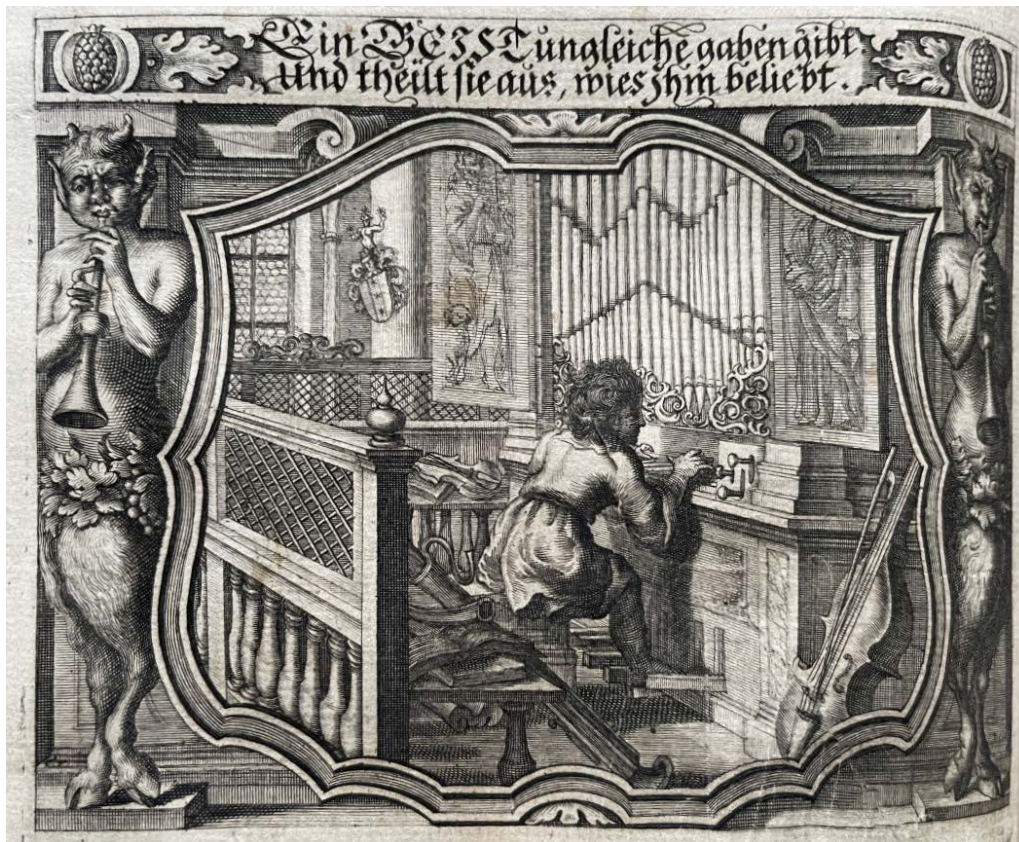 Ein GEIST ungleiche gaben gibt
Und theilt sie aus, wies Ihm beliebt.